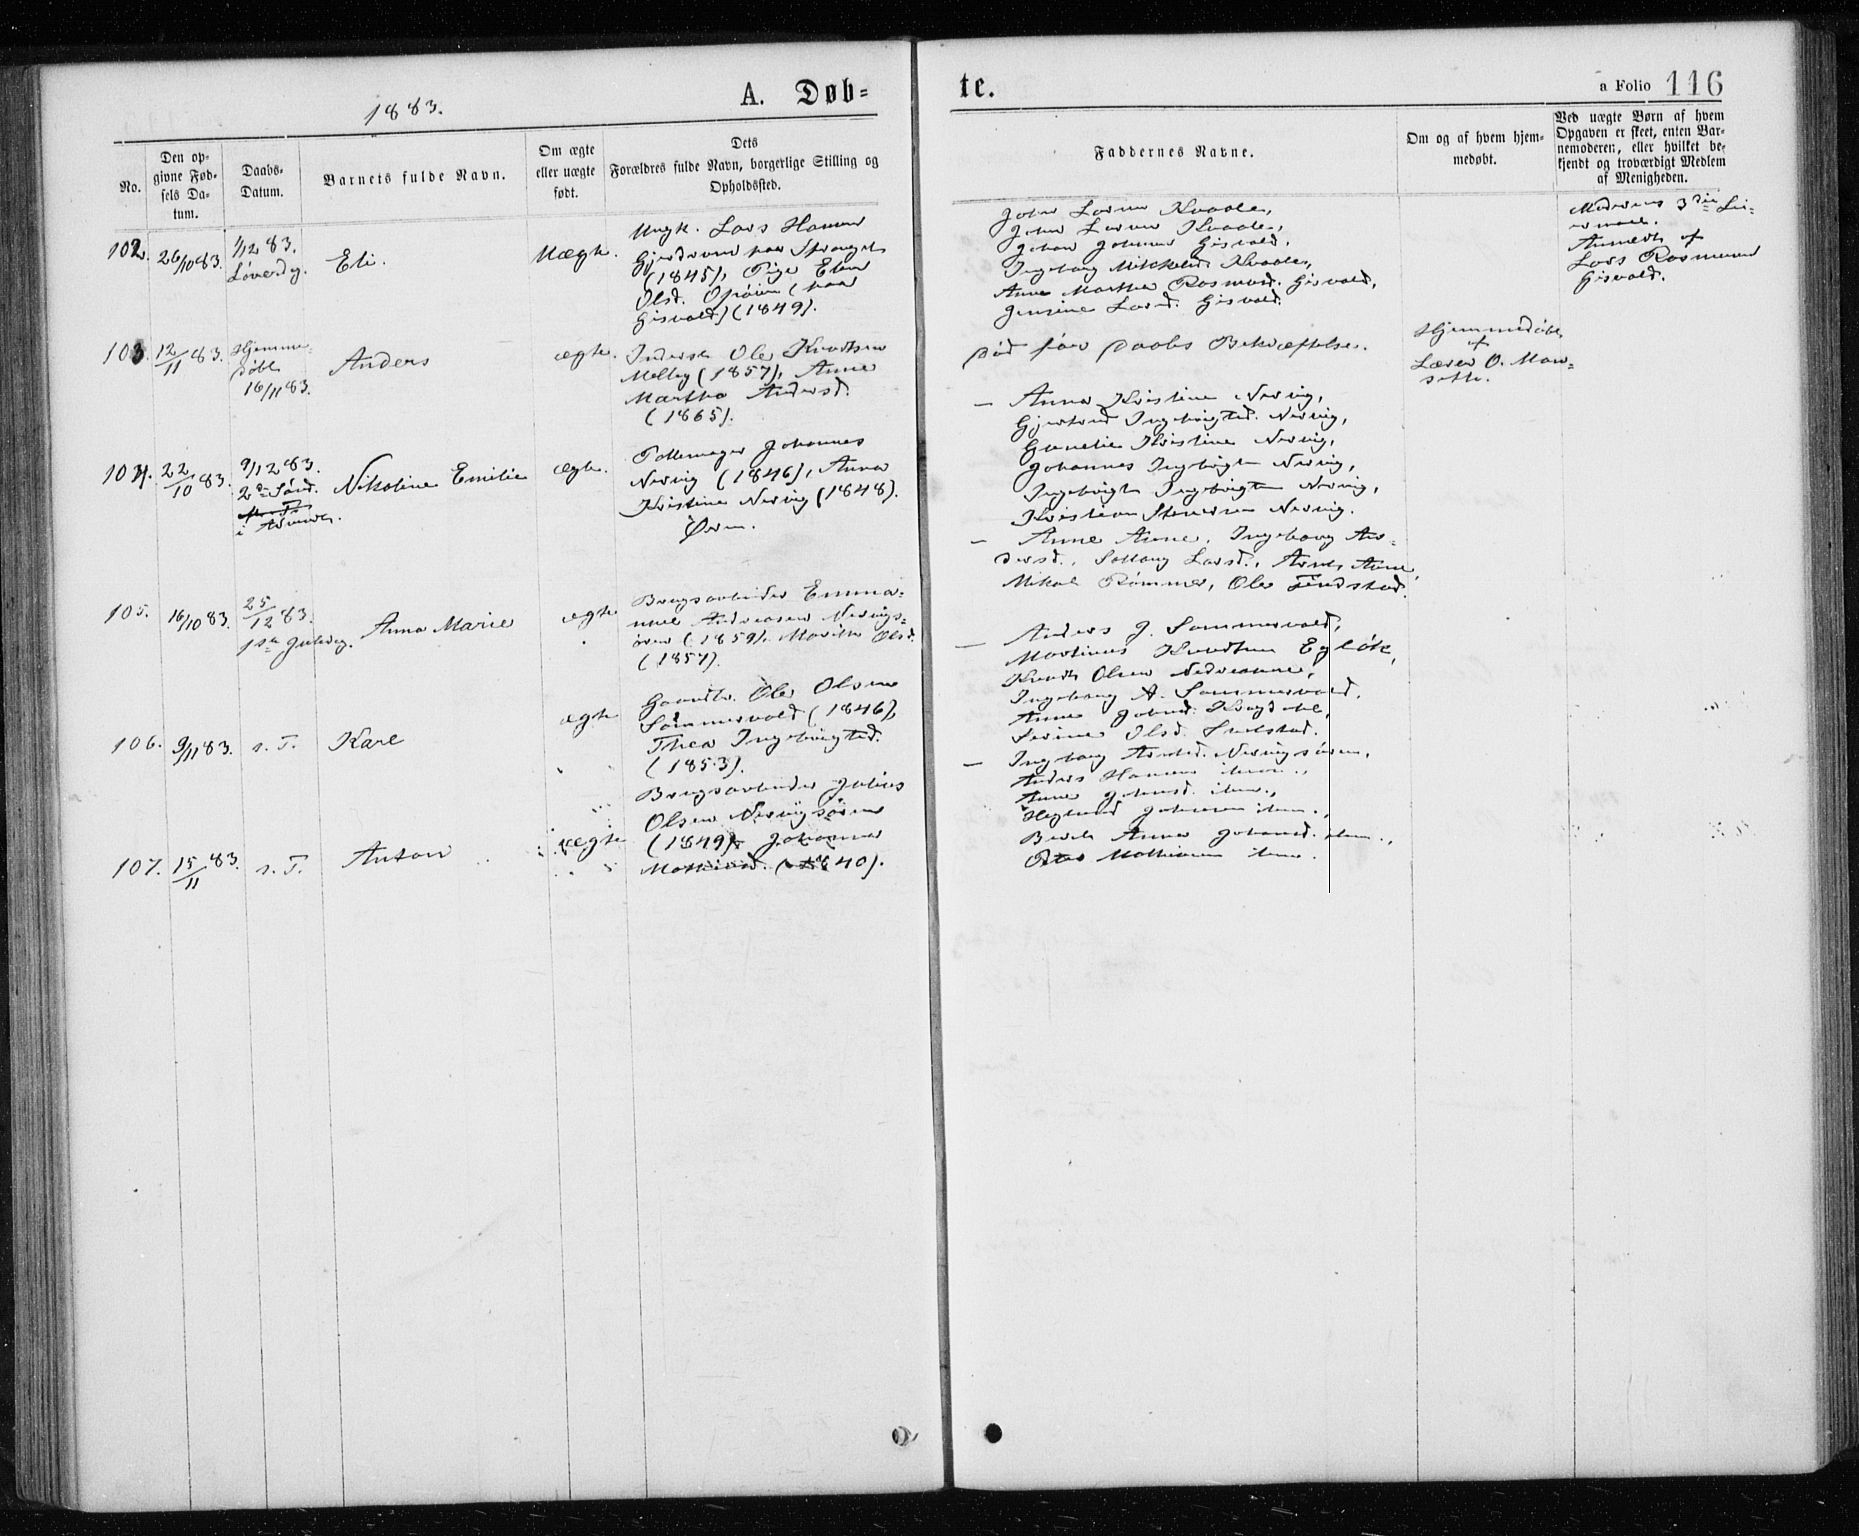 1883.
A. Døb-
te.
a Folio 116
No.
Den op-
givne Fød-
sels Da-
tum.
Daabs-
Datum.
Barnets fulde Navn.
Om ægte
eller uægte
født.
Dets
Forældres fulde Navn, borgerlige Stilling og
Opholdssted.
Faddernes Navne.
Om og af hvem hjem-
medøbt.
Ved uægte Børn af hvem
Opgaven er skeet, enten Bar-
nemoderen, eller hvilket be-
kjendt og troværdigt Medlem
af Menigheden.
102. 26/10 83.
1/12 83.
Løverdg.
Eli.
Uægte.
Ungk. Lars Hansen
(1845), Pige Elen
Olsd. (paa
Gisvold) (1849).
John Larsen Kvaale,
John Larsen Kvaale,
Johan Johnsen Gisvold,
Ingeborg Mikkelsd. Kvaale,
Anne Martha Rasmusd. Gisvold,
Jensine Larsd. Gisvold.
Moderens 3die Lei-
ermaal.
Anmeldt af
Lars Rasmussen
Gisvold.
103. 12/11 83.
Hjemme-
døbt
16/11 83.
Anders
ægte.
Inderst Ole Knudsen
Melby (1857), Anne
Martha Andersd.
(1865).
Død før Daabs Bekræftelse.
Hjemmedøbt
af
Lærer O. Mon-
sette.
104. 22/10 83.
9/12 83.
2den Sønd.
i Advent.
Nikoline Emilie
ægte.
Pottemager Johannes
Nervig (1846), Anna
Kristine Nervig (1848).
Øren.
— Anna Kristine Nervig,
Gjertrud Ingebrigtsd. Nervig,
Kristine Nervig,
Johannes Ingebrigtsen Nervig,
Ingebrigt Ingebrigtsen Nervig,
Kristian Nervig.
105. 16/10 83.
25/12 83.
1ste Juledag.
Anna Marie
ægte
Brugsarbeider Emma-
nuel Andreasen Nervigs-
øren (1859), Marith Olsd.
(1857).
— Anne Aune, Ingeborg An-
dersd., Solborg Larsd., Arnt Aune,
Mikal Rømmen, Ole Lindstad.
106. 9/11 83. s. T. Karl
ægte
Gaardbr. Ole Olsen
Sommervold (1846),
Thea Ingebrigtsd.
(1853).
— Anders J. Sommervold,
Martinus Knudsen
Knudt Olsen
Ingeborg A. Sommervold,
Anne Johnsd.
Serine Olsd.
107. 15/11 83. s. T. Anton
ægte
Brugsarbeider Julius
Olsen Nervigsøren
(1849), Johanna
Mathiasd. (1840).
— Ingeborg Arntsd. Nervigsøren,
Anders Hansen item.,
Anne Johnsd. item.,
Johnsen item.,
Berit Anna Johansd. item.,
Mathiasen item.